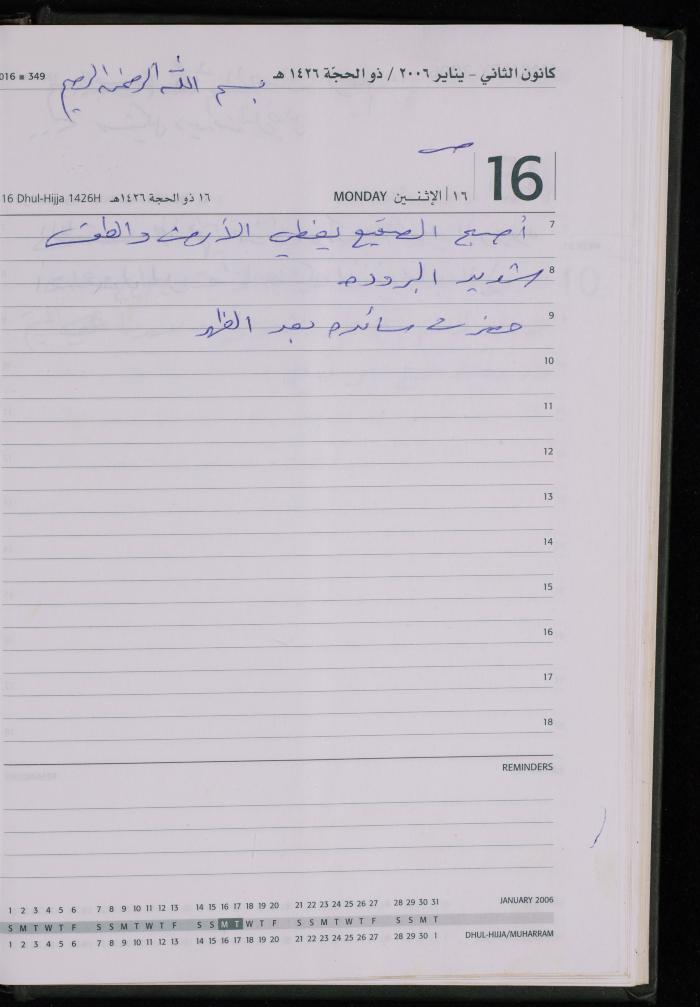 016 ■ 349
كانون الثاني - يناير ٢٠٠٦ / ذو الحجّة ١٤٢٦ هـ
بسم الله الرحمن الرحيم
16
MONDAY الإثنـيـن ١٦
16 Dhul-Hijja 1426H ١٦ ذو الحجة ١٤٢٦هـ
7
أصبح الصقيع يغطي الأرض والطقس
8
شديد البروده
9
حضرت سائده بعد الظهر
10
11
12
13
14
15
16
17
18
REMINDERS
1 2 3 4 5 6 7 8 9 10 11 12 13 14 15 16 17 18 19 20 21 22 23 24 25 26 27 28 29 30 31 JANUARY 2006
S M T W T F S S M T W T F S S M T W T F S S M T W T F S S M T
1 2 3 4 5 6 7 8 9 10 11 12 13 14 15 16 17 18 19 20 21 22 23 24 25 26 27 28 29 30 1 DHUL-HIJJA/MUHARRAM